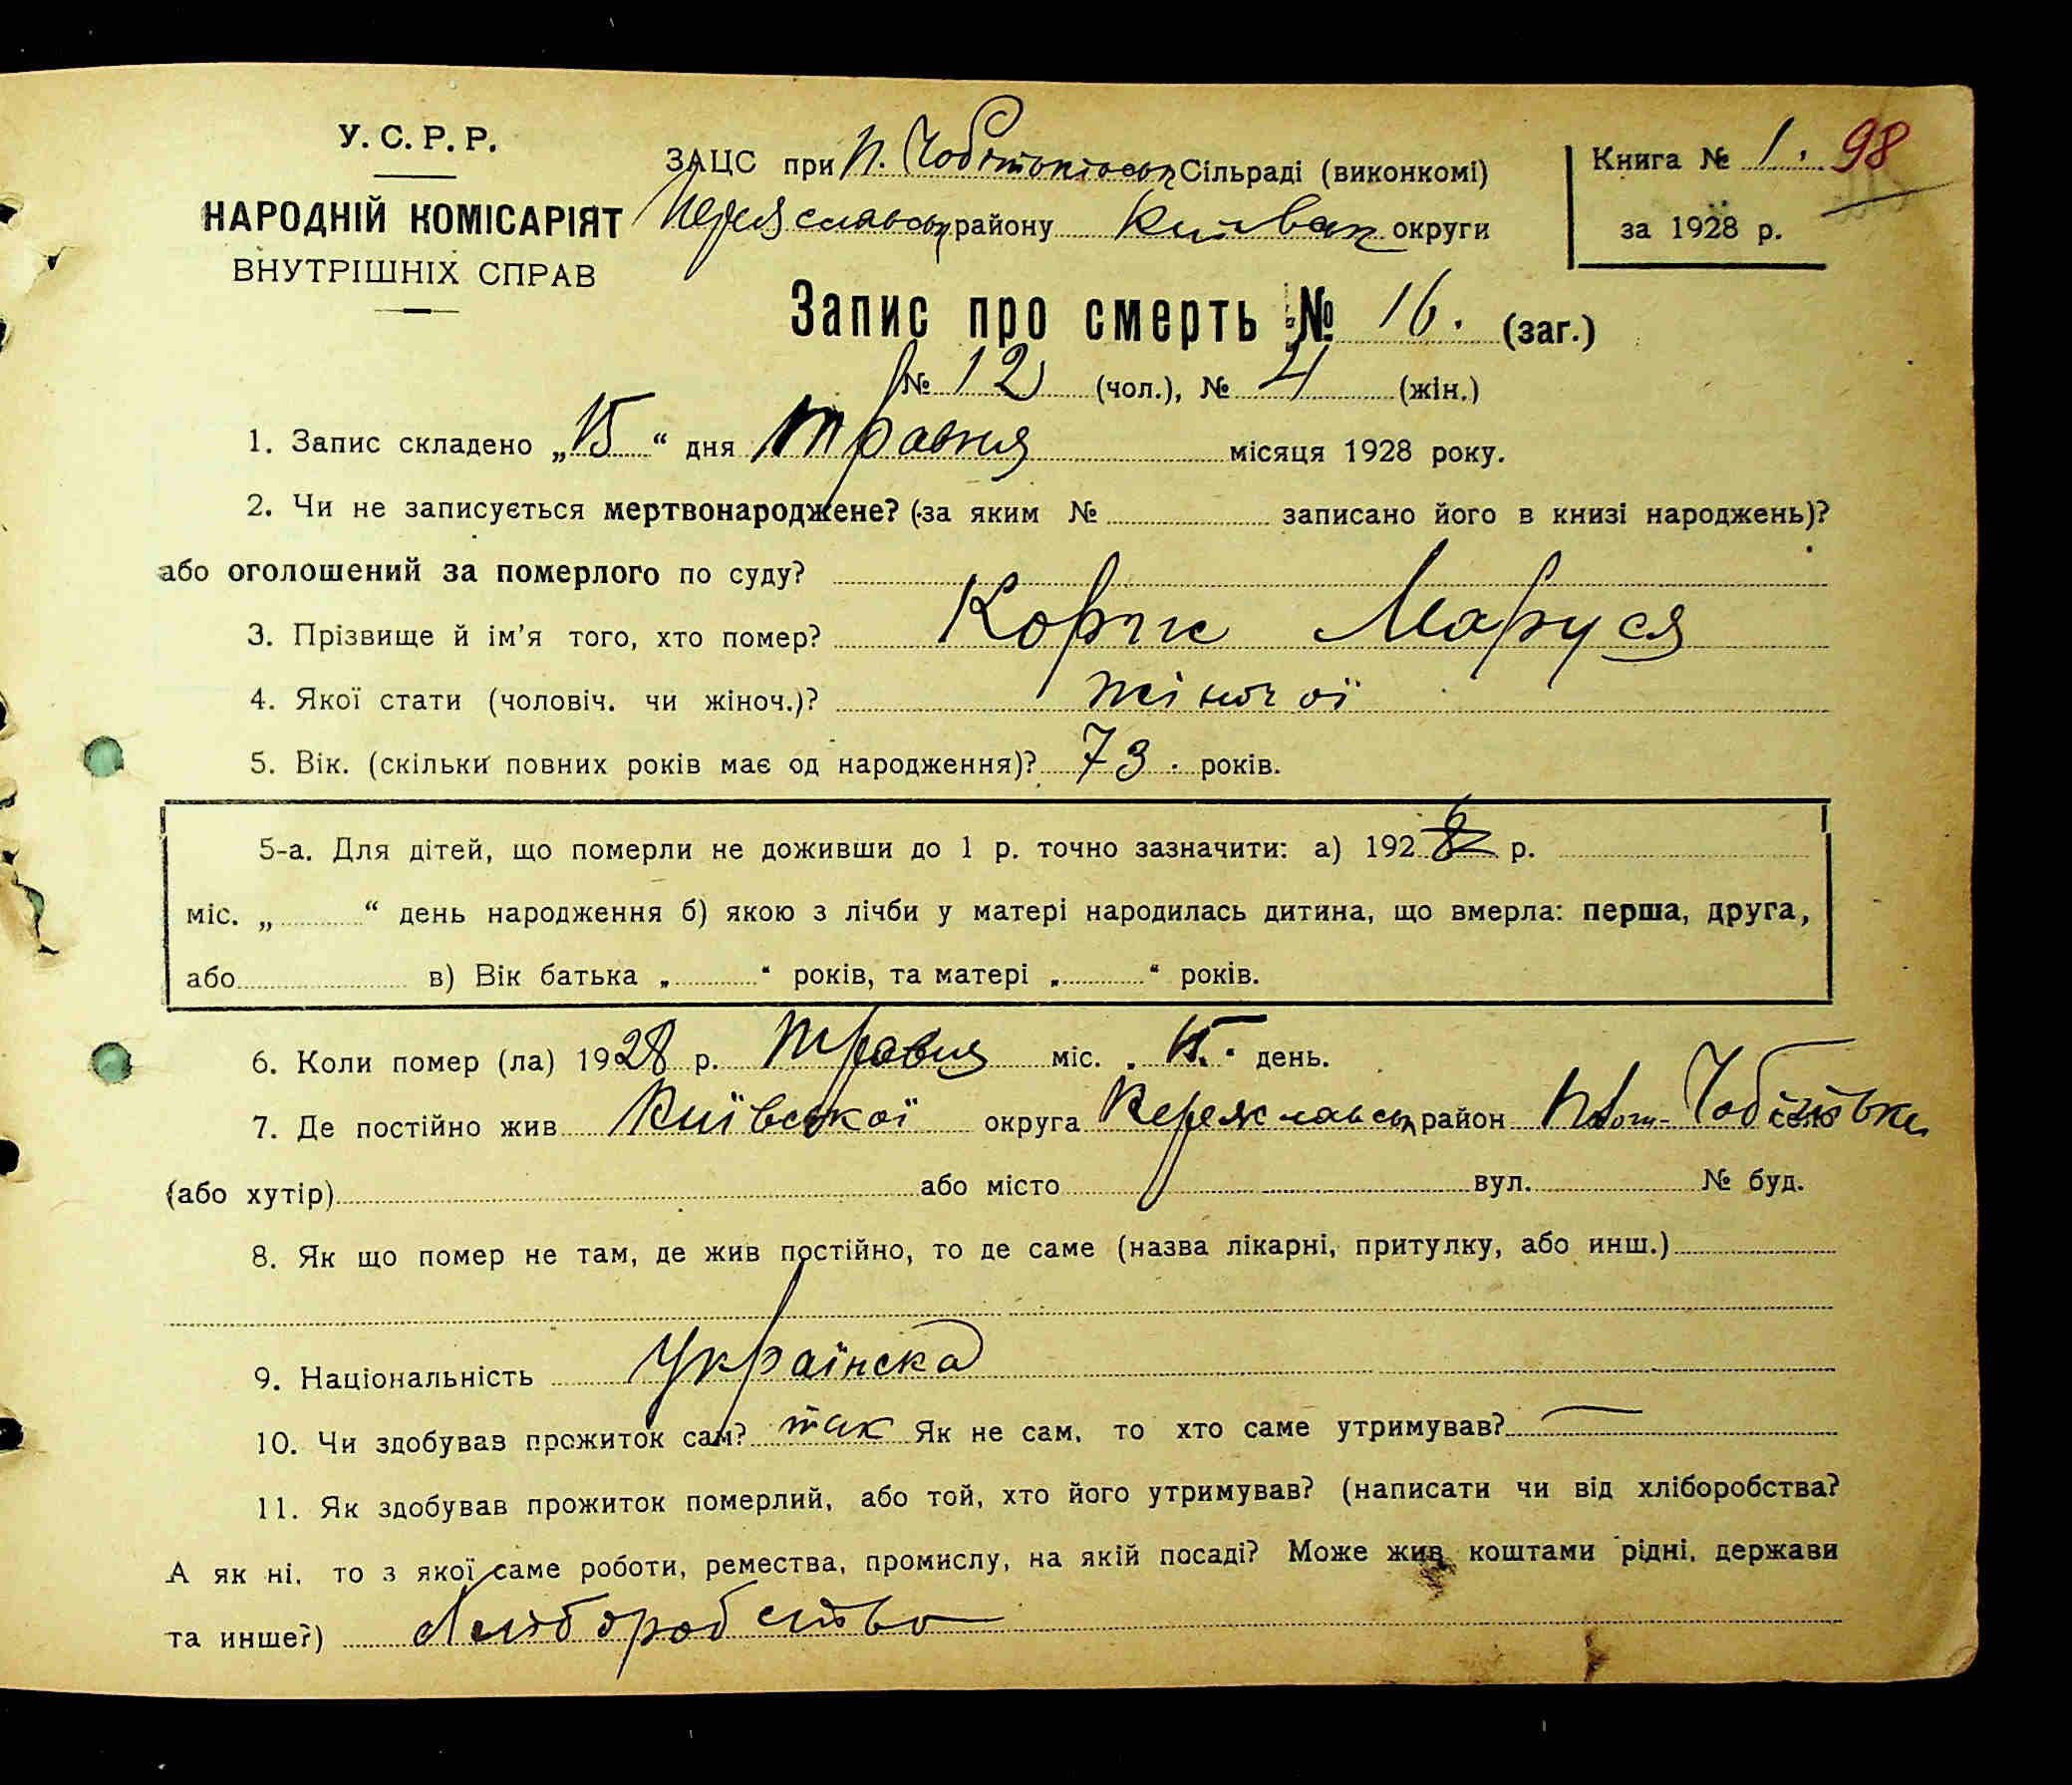 У. С. Р. Р.
НАРОДНІЙ КОМІСАРІЯТ
ВНУТРІШНІХ СПРАВ
ЗАЦС при П. Сільраді (виконкомі)
району округи
Книга № 1. 98
за 1928 р.
Запис про смерть № 16. (заг.)
№ 12 (чол.), № 4 (жін.)
1. Запис складено „15“ дня травня місяця 1928 року.
2. Чи не записується мертвонароджене? (за яким № записано його в книзі народжень)?
або оголошений за померлого по суду?
3. Прізвище й ім'я того, хто помер? Маруся
4. Якої стати (чоловіч. чи жіноч.)? жіночої
5. Вік. (скільки повних років має од народження)? 73. років.
5-а. Для дітей, що померли не доживши до 1 р. точно зазначити: а) 192 р.
міс. „ “ день народження б) якою з лічби у матері народилась дитина, що вмерла: перша, друга,
або в) Вік батька „ “ років, та матері „ “ років.
6. Коли помер (ла) 1928 р. травня міс. „15“ день.
7. Де постійно жив Київської округа район село
(або хутір) або місто вул. № буд.
8. Як що помер не там, де жив постійно, то де саме (назва лікарні, притулку, або инш.)
9. Національність Українска
10. Чи здобував прожиток сам? так Як не сам, то хто саме утримував? —
11. Як здобував прожиток померлий, або той, хто його утримував? (написати чи від хліборобства?
А як ні, то з якої саме роботи, ремества, промислу, на якій посаді? Може жив коштами рідні, держави
та инше?) хліборобство